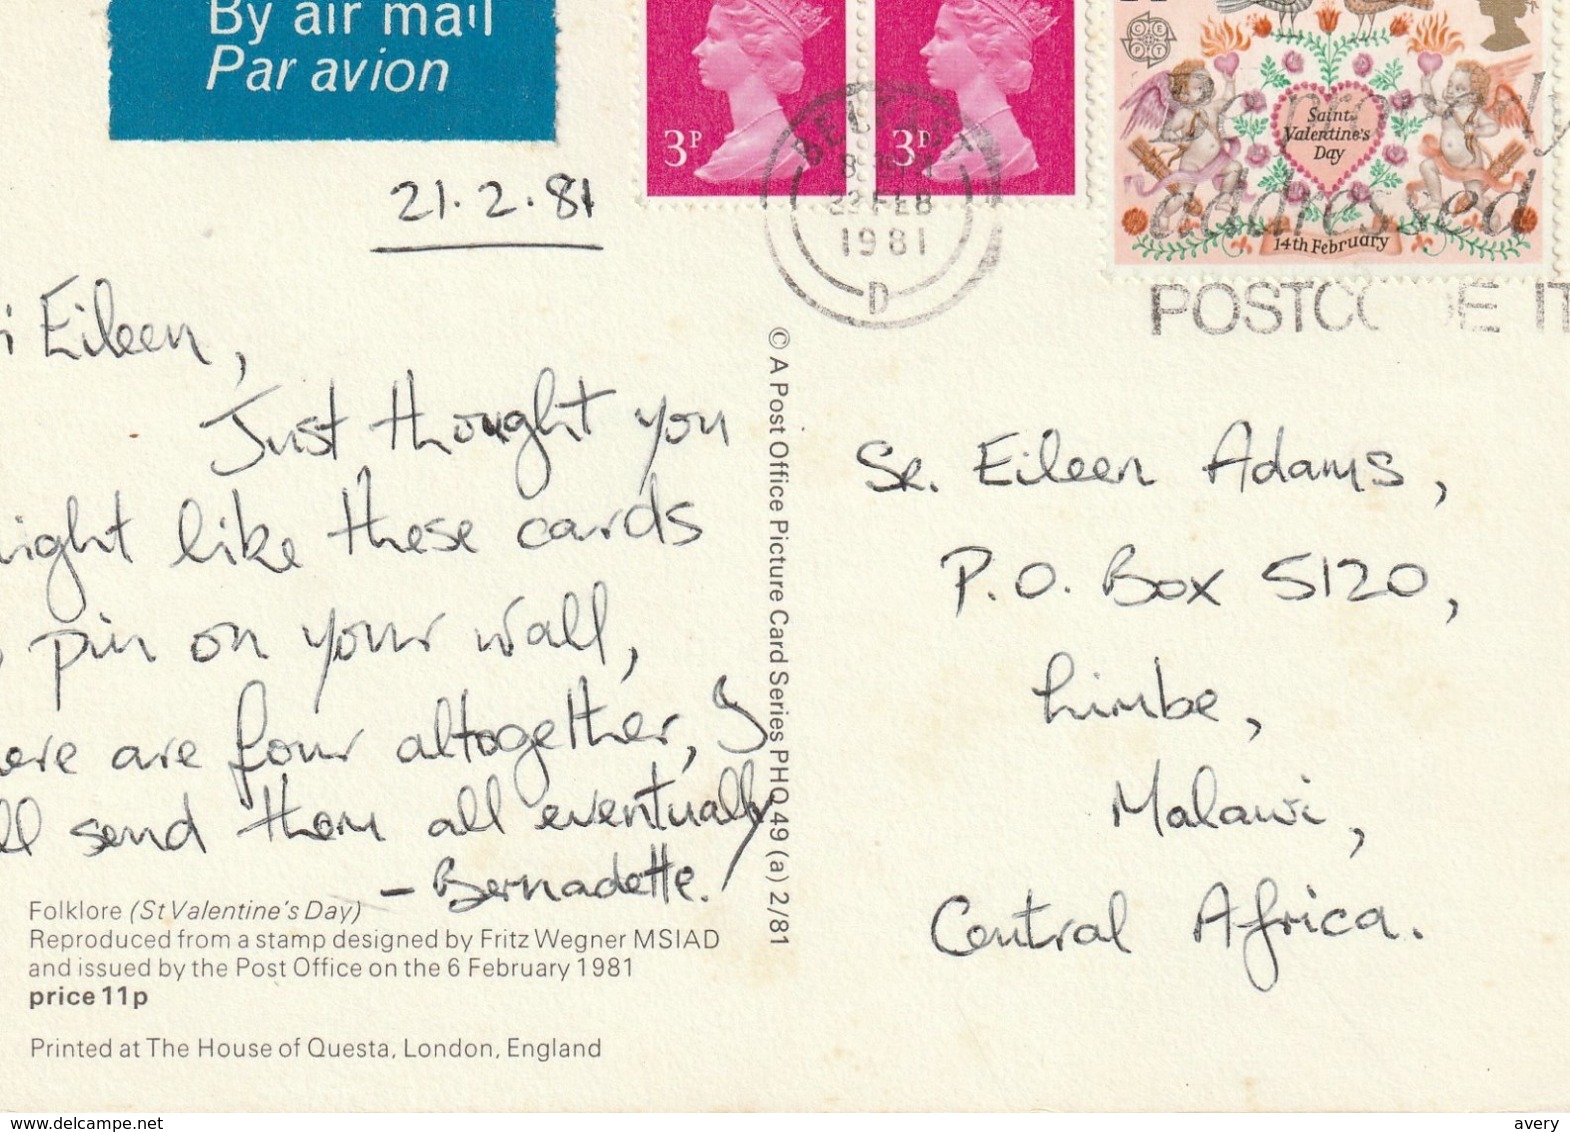 By air mail
Par avion
3P
3P
BELFAST
FEB
1981
D
Saint
Valentine's
Day
14th February
properly
addressed
POSTCODE IT
21.2.81
Hi Eileen,
Just thought you
might like these cards
to pin on your wall,
there are four altogether, I
will send them all eventually
– Bernadette.
© A Post Office Picture Card Series PHQ 49 (a) 2/81
Sr. Eileen Adams,
P.O. Box 5120,
Limbe,
Malawi,
Central Africa.
Folklore (St Valentine's Day)
Reproduced from a stamp designed by Fritz Wegner MSIAD
and issued by the Post Office on the 6 February 1981
price 11p
Printed at The House of Questa, London, England
www.delcampe.net
avery